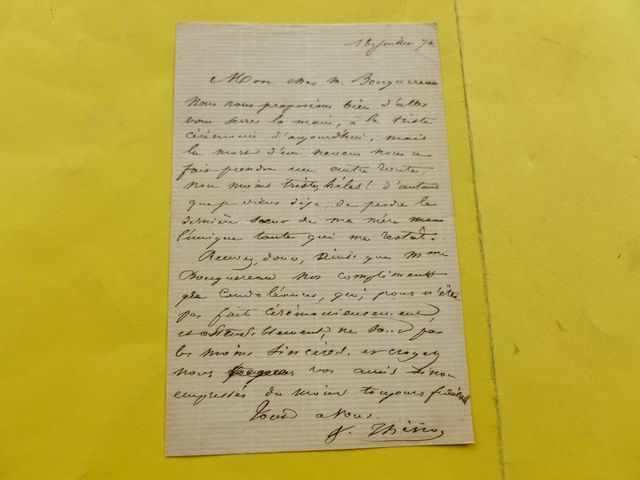 18 Juillet 70
Mon cher M. Bouguereau
Nous nous proposions bien d'aller
vous serrer la main, à la triste
cérémonie d'aujourdhui, mais
la mort d'un neveu nous a
fait prendre un autre route,
non moins triste, hélas! d'autant
que je viens déjà de perdre la
dernière sœur de ma mère
l'unique tante qui me restât.
Recevez, donc, ainsi que Mme
Bouguereau nos compliments
de Condoléances, qui, pour n'être
pas faits cérémonieusement,
et ostensiblement, ne sont pas
les moins sincères. et croyez
nous vos amis sinon
empressés du moins toujours fidèles
Tout à Vous.